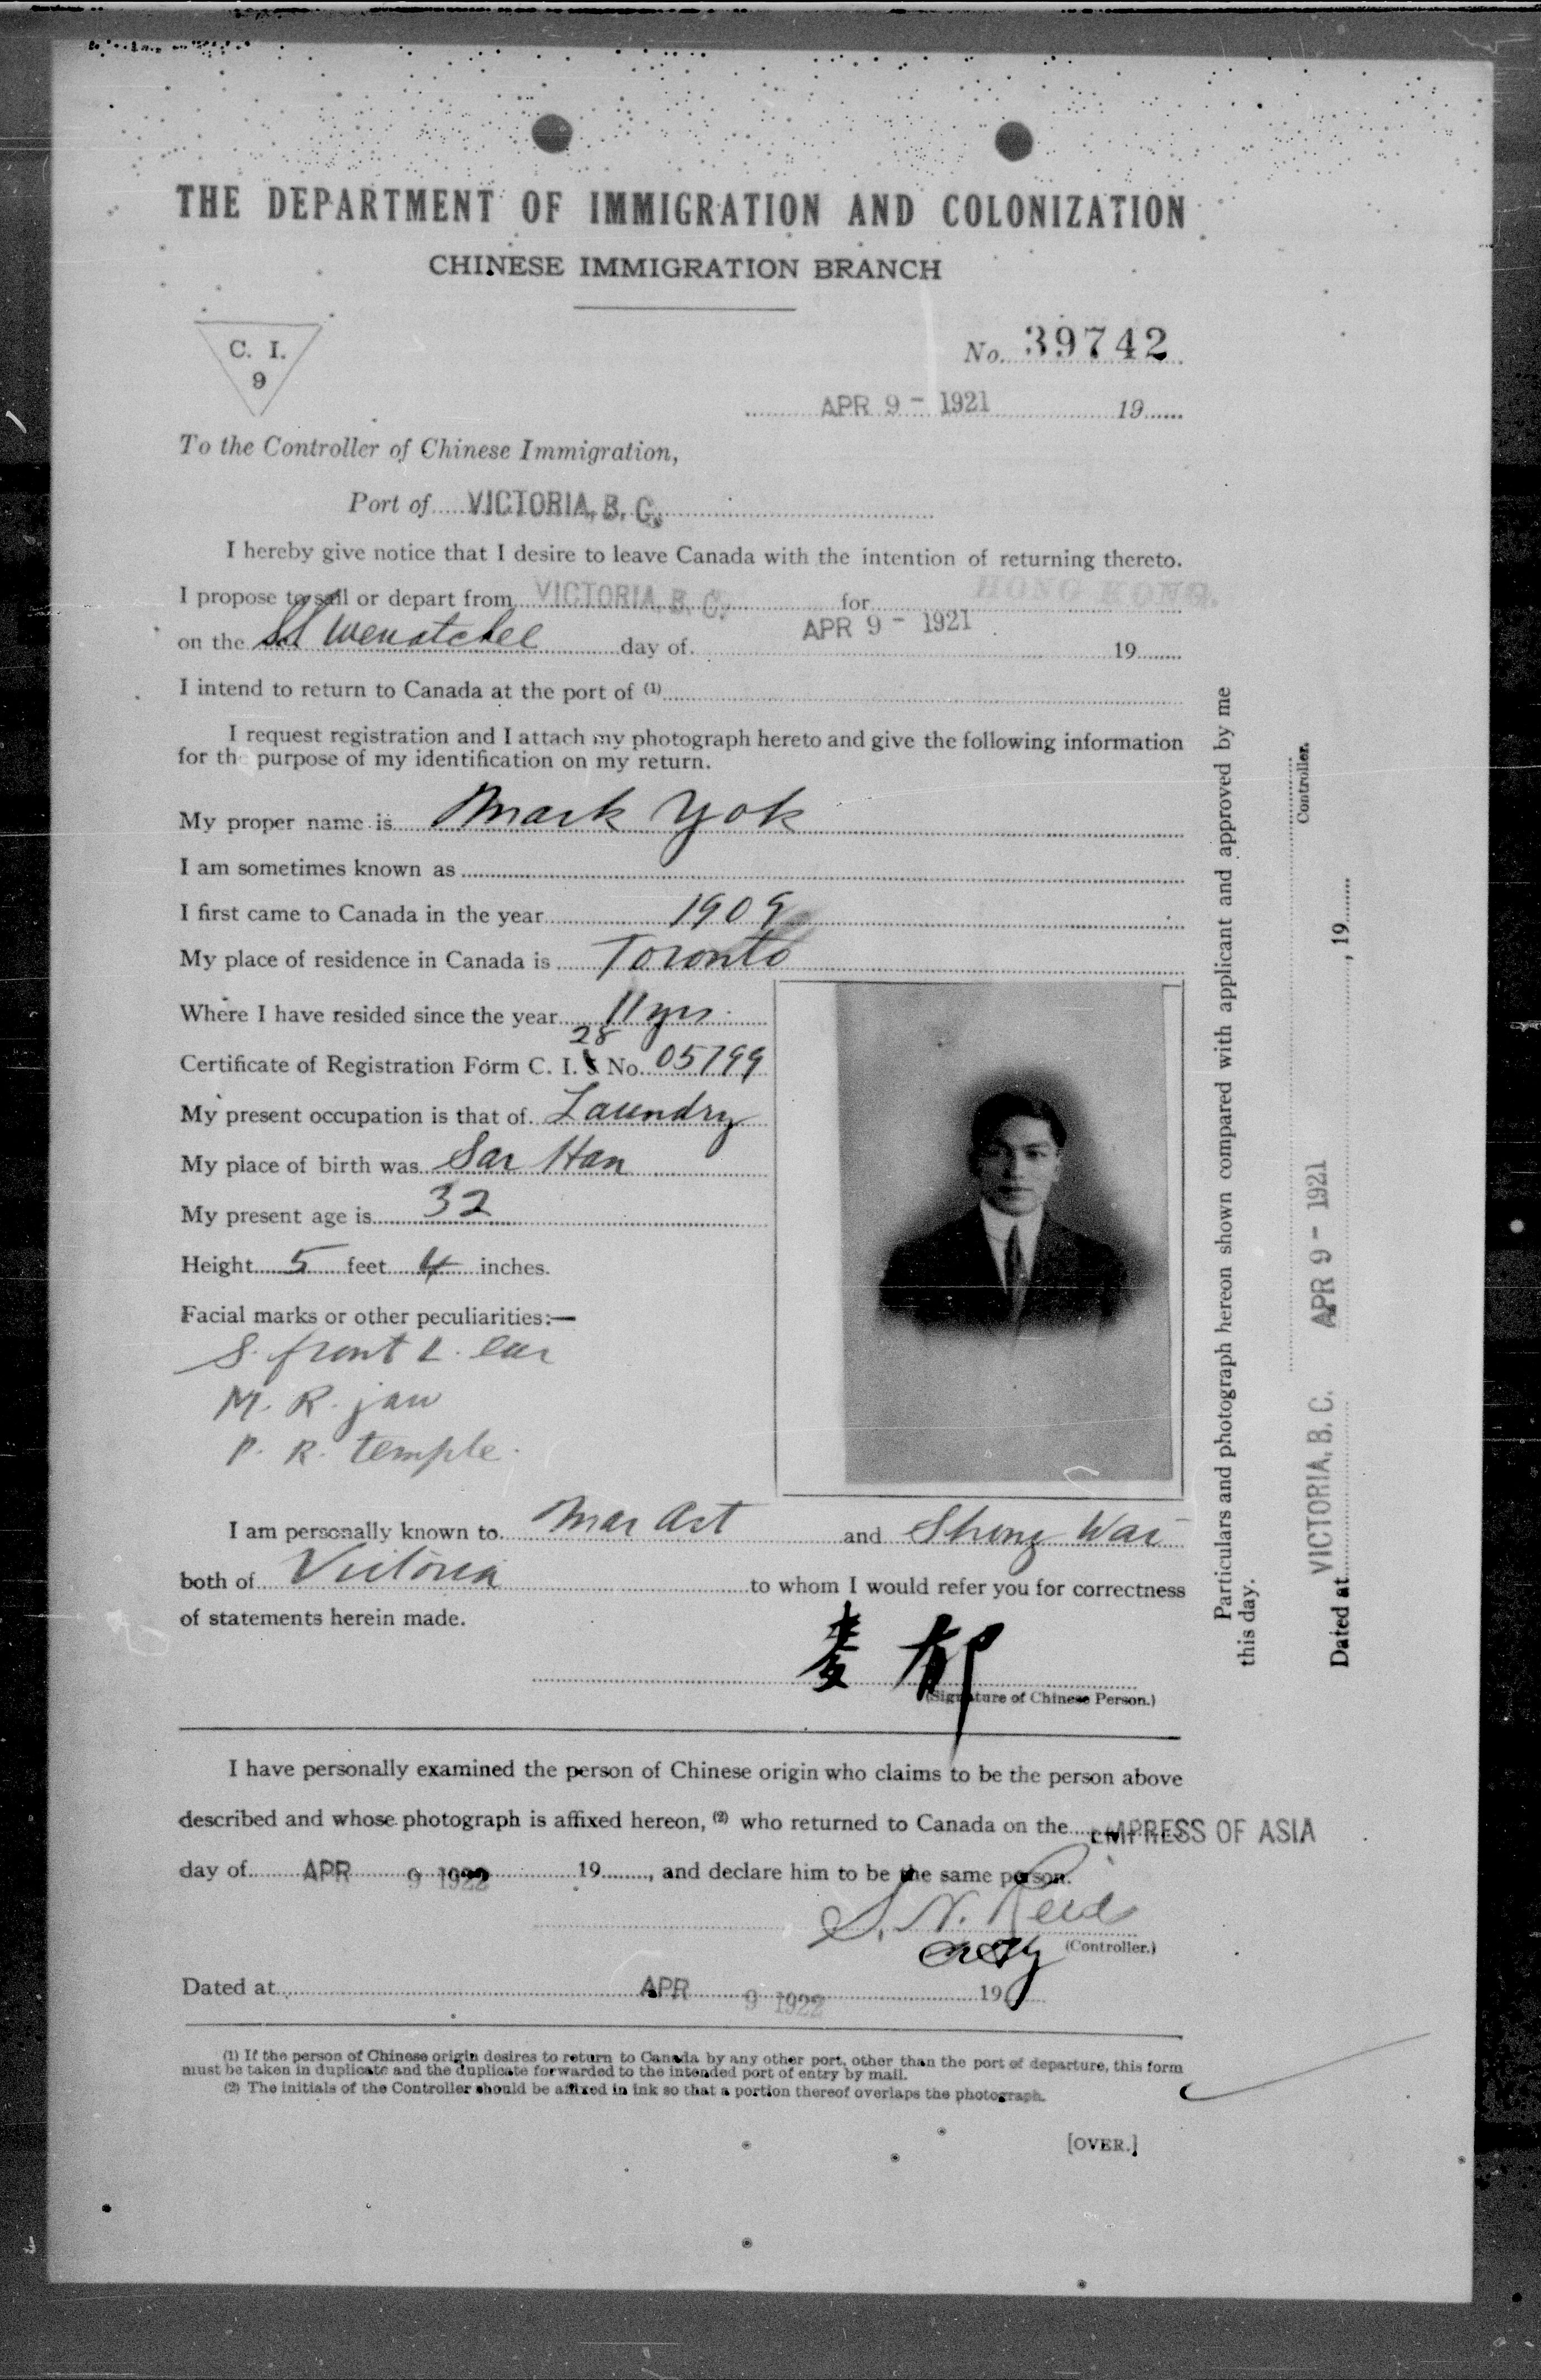 THE DEPARTMENT OF IMMIGRATION AND COLONIZATION
CHINESE IMMIGRATION BRANCH
C. I.
9
No. 39742
APR 9 - 1921 19
To the Controller of Chinese Immigration,
Port of VICTORIA, B. C.
I hereby give notice that I desire to leave Canada with the intention of returning thereto.
I propose to sail or depart from VICTORIA, B. C. for HONG KONG.
on the SS Wenatchee day of APR 9 - 1921 19
I intend to return to Canada at the port of (1)
I request registration and I attach my photograph hereto and give the following information
for the purpose of my identification on my return.
My proper name is Mark Yok
I am sometimes known as
I first came to Canada in the year 1909
My place of residence in Canada is Toronto
Where I have resided since the year 11 yrs.
28
Certificate of Registration Form C. I. 5 No. 05799
My present occupation is that of Laundry
My place of birth was Sar Han
My present age is 32
Height 5 feet 4 inches.
Facial marks or other peculiarities:—
S. front L. ear
M. R. jaw
P. R. temple.
I am personally known to Mar Art and Shong Wai
both of Victoria to whom I would refer you for correctness
of statements herein made.
麦 郁
(Signature of Chinese Person.)
I have personally examined the person of Chinese origin who claims to be the person above
described and whose photograph is affixed hereon, (2) who returned to Canada on the EMPRESS OF ASIA
day of APR 9 1922 19, and declare him to be the same person.
S. N. Reid
(Controller.)
Dated at APR 9 1922 19
(1) If the person of Chinese origin desires to return to Canada by any other port, other than the port of departure, this form
must be taken in duplicate and the duplicate forwarded to the intended port of entry by mail.
(2) The initials of the Controller should be affixed in ink so that a portion thereof overlaps the photograph.
[OVER.]
Particulars and photograph hereon shown compared with applicant and approved by me
this day.
Controller.
Dated at VICTORIA, B. C. APR 9 - 1921, 19